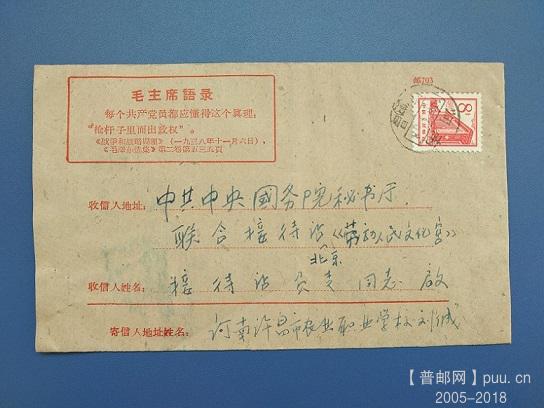 毛主席語录
每个共产党员都应懂得这个真理:
“枪杆子里面出政权”。
《战争和战略問題》(一九三八年十一月六日),
《毛泽东选集》第二卷第五三五頁
邮703
8
收信人地址:
中共中央 国务院秘书厅
联合接待站《劳动人民文化宫》
北京
收信人姓名:
接待站负责同志 啟
寄信人地址姓名:
河南许昌市农业职业学校刘诚
【普邮网】puu.cn
2005-2018